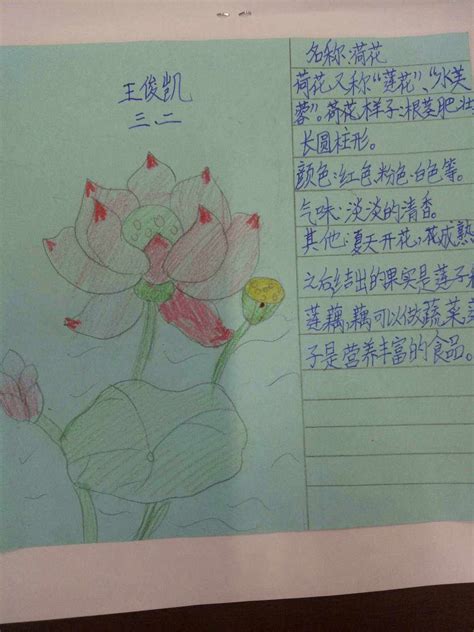 王俊凯
三.二
名称:荷花
荷花,又称“莲花”、“水芙
蓉”。荷花样子:根茎肥壮
长圆柱形。
颜色:红色、粉色、白色等。
气味:淡淡的清香。
其他:夏天开花,花成熟
之后结出的果实是莲子和
莲藕,藕可以做蔬菜,莲
子是营养丰富的食品。